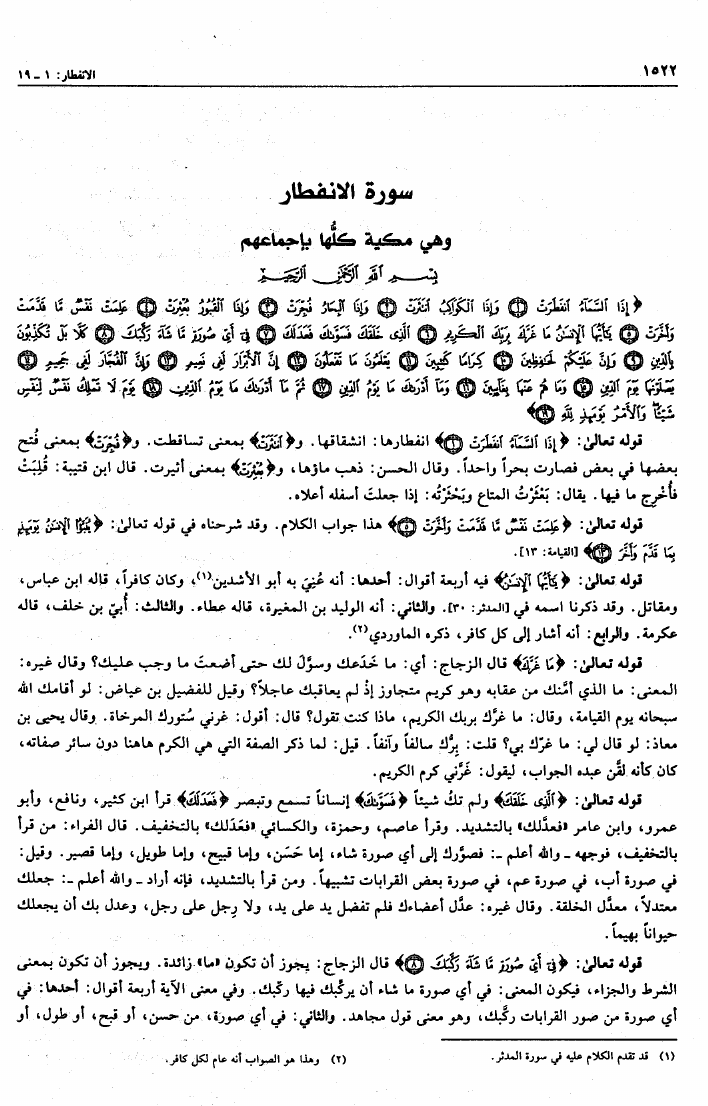 ١٥٢٢
الانفطار: ١ ـ ١٩
سورة الانفطار
وهي مكية كلُّها بإجماعهم
بِسْمِ اللَّهِ الرَّحْمَٰنِ الرَّحِيمِ
﴿إِذَا السَّمَآءُ انفَطَرَتْ ۝١ وَإِذَا الْكَوَاكِبُ انتَثَرَتْ ۝٢ وَإِذَا الْبِحَارُ فُجِّرَتْ ۝٣ وَإِذَا الْقُبُورُ بُعْثِرَتْ ۝٤ عَلِمَتْ نَفْسٌ مَّا قَدَّمَتْ
وَأَخَّرَتْ ۝٥ يَٰٓأَيُّهَا الْإِنسَٰنُ مَا غَرَّكَ بِرَبِّكَ الْكَرِيمِ ۝٦ الَّذِي خَلَقَكَ فَسَوَّىٰكَ فَعَدَلَكَ ۝٧ فِيٓ أَيِّ صُورَةٍ مَّا شَآءَ رَكَّبَكَ ۝٨ كَلَّا بَلْ تُكَذِّبُونَ
بِالدِّينِ ۝٩ وَإِنَّ عَلَيْكُمْ لَحَٰفِظِينَ ۝١٠ كِرَامًا كَٰتِبِينَ ۝١١ يَعْلَمُونَ مَا تَفْعَلُونَ ۝١٢ إِنَّ الْأَبْرَارَ لَفِي نَعِيمٍ ۝١٣ وَإِنَّ الْفُجَّارَ لَفِي جَحِيمٍ ۝١٤
يَصْلَوْنَهَا يَوْمَ الدِّينِ ۝١٥ وَمَا هُمْ عَنْهَا بِغَآئِبِينَ ۝١٦ وَمَآ أَدْرَىٰكَ مَا يَوْمُ الدِّينِ ۝١٧ ثُمَّ مَآ أَدْرَىٰكَ مَا يَوْمُ الدِّينِ ۝١٨ يَوْمَ لَا تَمْلِكُ نَفْسٌ لِّنَفْسٍ
شَيْئًا وَالْأَمْرُ يَوْمَئِذٍ لِّلَّهِ ۝١٩﴾
قوله تعالىٰ: ﴿إِذَا السَّمَآءُ انفَطَرَتْ ۝١﴾ انفطارها: انشقاقها. و﴿انتَثَرَتْ﴾ بمعنى تساقطت. و﴿فُجِّرَتْ﴾ بمعنى فُتح
بعضها في بعض فصارت بحراً واحداً. وقال الحسن: ذهب ماؤها، و﴿بُعْثِرَتْ﴾ بمعنى أثيرت. قال ابن قتيبة: قُلِبَتْ
فأُخرِج ما فيها. يقال: بَعْثَرْتُ المتاع وبَحْثَرْتُه: إذا جعلتَ أسفله أعلاه.
قوله تعالىٰ: ﴿عَلِمَتْ نَفْسٌ مَّا قَدَّمَتْ وَأَخَّرَتْ ۝٥﴾ هذا جواب الكلام. وقد شرحناه في قوله تعالىٰ: ﴿يُنَبَّؤُا الْإِنسَٰنُ يَوْمَئِذٍ
بِمَا قَدَّمَ وَأَخَّرَ ۝١٣﴾ [القيامة: ١٣].
قوله تعالىٰ: ﴿يَٰٓأَيُّهَا الْإِنسَٰنُ﴾ فيه أربعة أقوال: أحدها: أنه عُنِيَ به أبو الأشدين(١)، وكان كافراً، قاله ابن عباس،
ومقاتل. وقد ذكرنا اسمه في [المدثر: ٣٠]. والثاني: أنه الوليد بن المغيرة، قاله عطاء. والثالث: أُبيّ بن خلف، قاله
عكرمة. والرابع: أنه أشار إلى كل كافر، ذكره الماوردي(٢).
قوله تعالىٰ: ﴿مَا غَرَّكَ﴾ قال الزجاج: أي: ما خَدَعك وسوَّل لك حتى أضعتَ ما وجب عليك؟ وقال غيره:
المعنى: ما الذي أمَّنك من عقابه وهو كريم متجاوز إذْ لم يعاقبك عاجلاً؟ وقيل للفضيل بن عياض: لو أقامك الله
سبحانه يوم القيامة، وقال: ما غرَّك بربك الكريم، ماذا كنت تقول؟ قال: أقول: غرني سُتورك المرخاة. وقال يحيى بن
معاذ: لو قال لي: ما غرّك بي؟ قلت: بِرُّك سالفاً وآنفاً. قيل: لما ذكر الصفة التي هي الكرم هاهنا دون سائر صفاته،
كان كأنه لقَّن عبده الجواب، ليقول: غَرَّني كرم الكريم.
قوله تعالىٰ: ﴿الَّذِي خَلَقَكَ﴾ ولم تكُ شيئاً ﴿فَسَوَّىٰكَ﴾ إنساناً تسمع وتبصر ﴿فَعَدَلَكَ﴾ قرأ ابن كثير، ونافع، وأبو
عمرو، وابن عامر «فعدَّلك» بالتشديد. وقرأ عاصم، وحمزة، والكسائي «فعَدَلك» بالتخفيف. قال الفراء: من قرأ
بالتخفيف، فوجهه ـ والله أعلم ـ: فصوَّرك إلى أي صورة شاء، إما حَسَن، وإما قبيح، وإما طويل، وإما قصير. وقيل:
في صورة أب، في صورة عم، في صورة بعض القرابات تشبيهاً. ومن قرأ بالتشديد، فإنه أراد ـ والله أعلم ـ: جعلك
معتدلاً، معدَّل الخلقة. وقال غيره: عدَّل أعضاءك فلم تفضل يد على يد، ولا رِجل على رجل، وعدل بك أن يجعلك
حيواناً بهيماً.
قوله تعالىٰ: ﴿فِيٓ أَيِّ صُورَةٍ مَّا شَآءَ رَكَّبَكَ ۝٨﴾ قال الزجاج: يجوز أن تكون «ما» زائدة. ويجوز أن تكون بمعنى
الشرط والجزاء، فيكون المعنى: في أي صورة ما شاء أن يركّبك فيها ركّبك. وفي معنى الآية أربعة أقوال: أحدها: في
أي صورة من صور القرابات ركَّبك، وهو معنى قول مجاهد. والثاني: في أي صورة، من حسن، أو قبح، أو طول، أو
(١) قد تقدم الكلام عليه في سورة المدثر.
(٢) وهذا هو الصواب أنه عام لكل كافر.